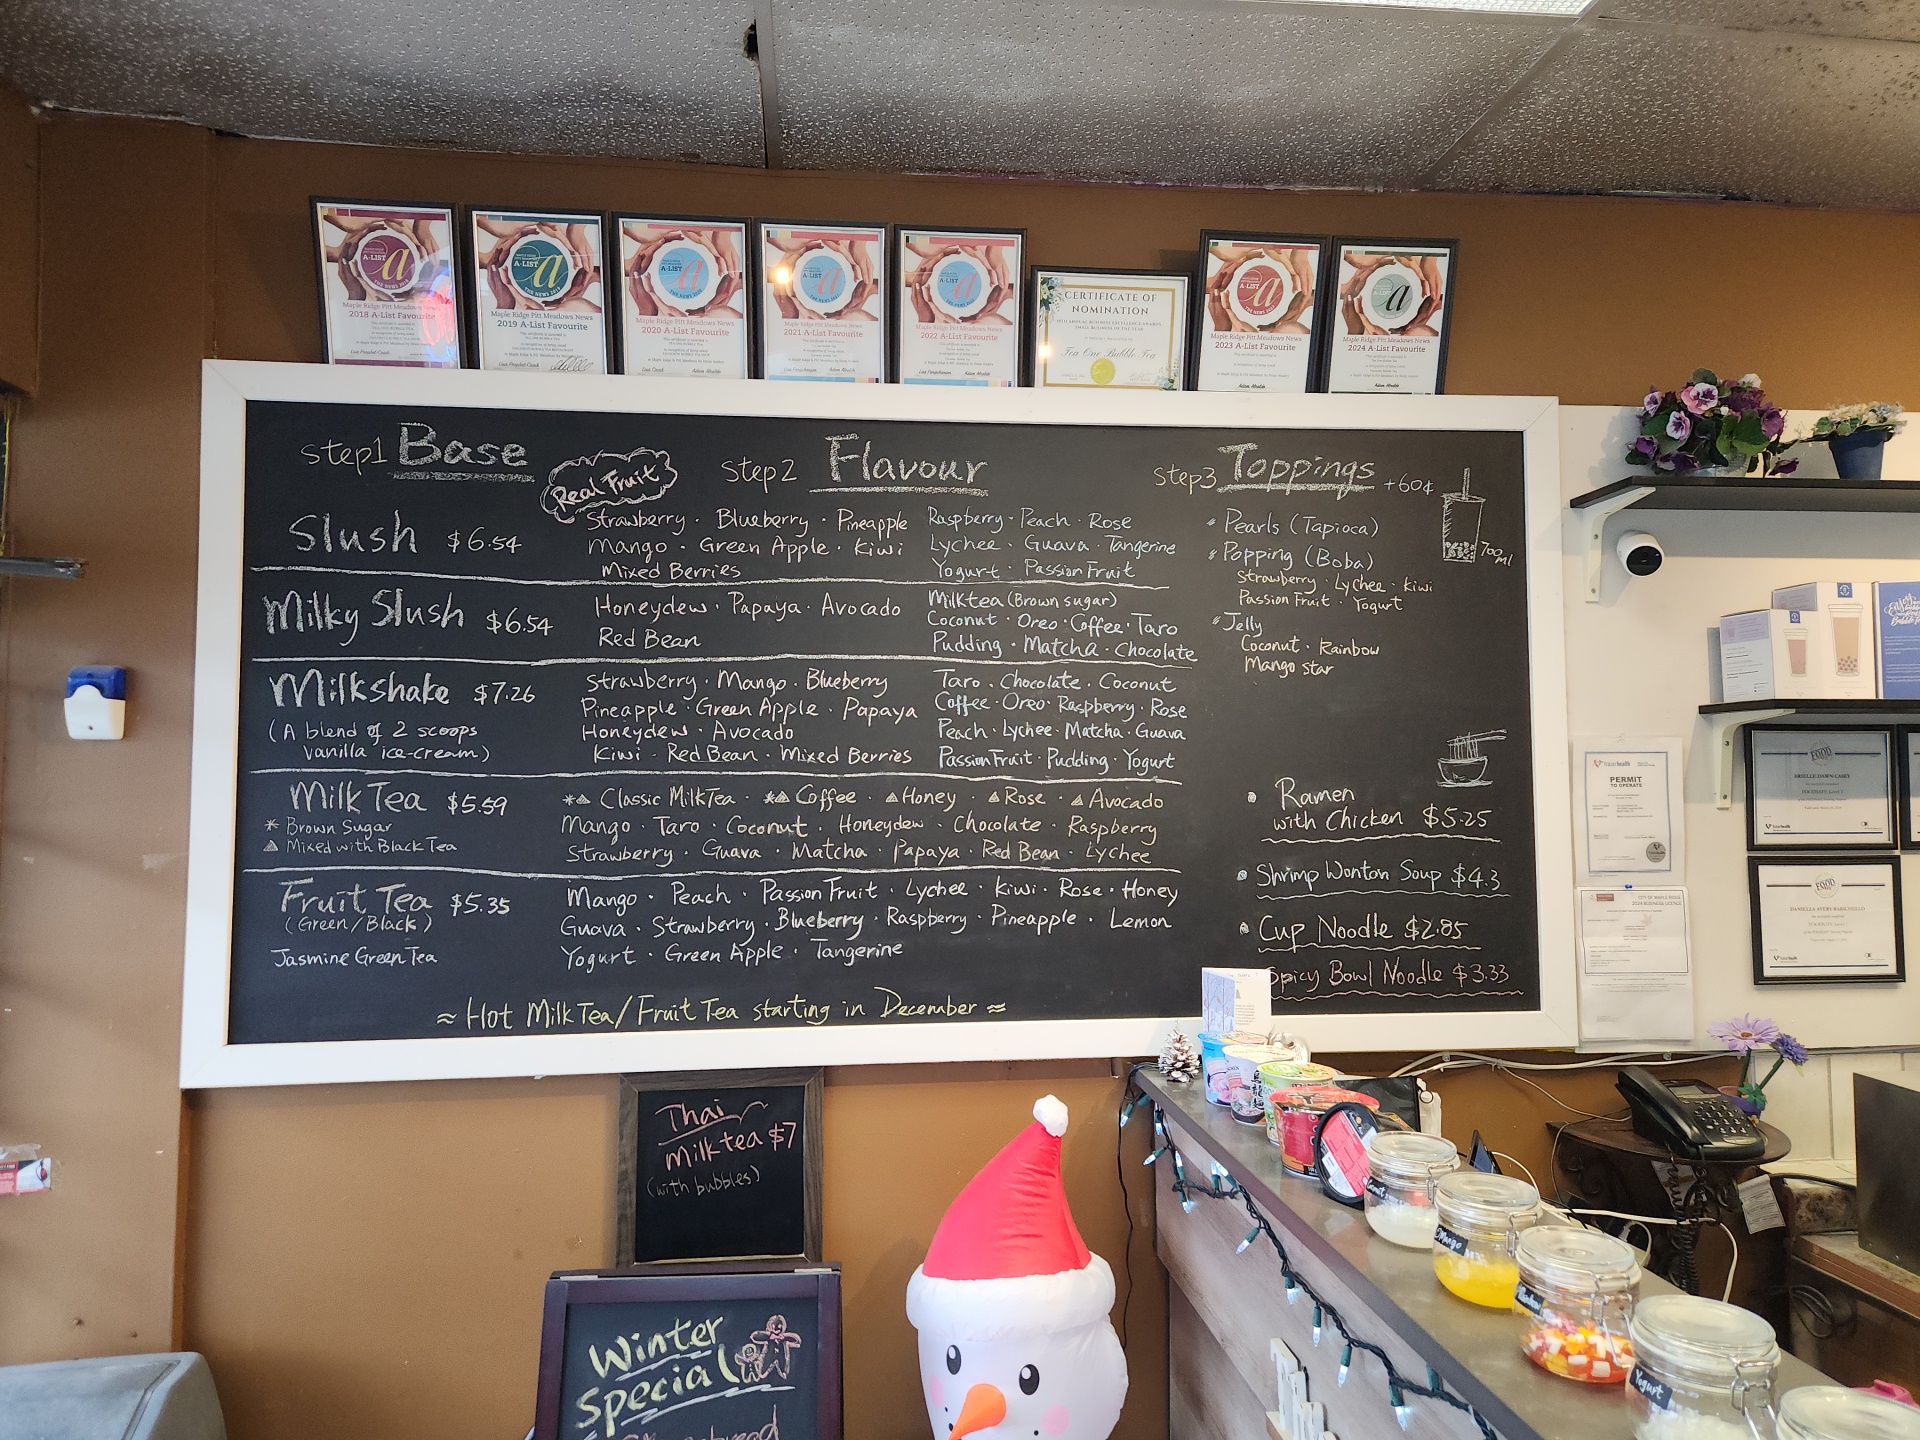 A-LIST
Maple Ridge Pitt Meadows News
2018 A-List Favourite
A-LIST
THE NEWS 2019
Maple Ridge Pitt Meadows News
2019 A-List Favourite
A-LIST
Maple Ridge Pitt Meadows News
2020 A-List Favourite
A-LIST
Maple Ridge Pitt Meadows News
2021 A-List Favourite
A-LIST
Maple Ridge Pitt Meadows News
2022 A-List Favourite
CERTIFICATE OF
NOMINATION
Tea One Bubble Tea
Maple Ridge Pitt Meadows News
2023 A-List Favourite
Maple Ridge Pitt Meadows News
2024 A-List Favourite
Step1 Base
Real Fruit
Step2 Flavour
Step3 Toppings +60¢
Slush $6.54
Strawberry · Blueberry · Pineapple
Mango · Green Apple · Kiwi
Mixed Berries
Raspberry · Peach · Rose
Lychee · Guava · Tangerine
Yogurt · Passion Fruit
Milky Slush $6.54
Honeydew · Papaya · Avocado
Red Bean
Milktea (Brown sugar)
Coconut · Oreo · Coffee · Taro
Pudding · Matcha · Chocolate
Milkshake $7.26
(A blend of 2 scoops
vanilla ice-cream)
Strawberry · Mango · Blueberry
Pineapple · Green Apple · Papaya
Honeydew · Avocado
Kiwi · Red Bean · Mixed Berries
Taro · Chocolate · Coconut
Coffee · Oreo · Raspberry · Rose
Peach · Lychee · Matcha · Guava
Passion Fruit · Pudding · Yogurt
Milk Tea $5.59
* Brown Sugar
▲ Mixed with Black Tea
*▲ Classic Milk Tea · *▲ Coffee · ▲ Honey · ▲ Rose · ▲ Avocado
Mango · Taro · Coconut · Honeydew · Chocolate · Raspberry
Strawberry · Guava · Matcha · Papaya · Red Bean · Lychee
Fruit Tea $5.35
(Green/Black)
Jasmine Green Tea
Mango · Peach · Passion Fruit · Lychee · Kiwi · Rose · Honey
Guava · Strawberry · Blueberry · Raspberry · Pineapple · Lemon
Yogurt · Green Apple · Tangerine
≈ Hot Milk Tea/Fruit Tea starting in December ≈
Pearls (Tapioca)
Popping (Boba)
Strawberry · Lychee · Kiwi
Passion Fruit · Yogurt
Jelly
Coconut · Rainbow
Mango star
700ml
• Ramen
with Chicken $5.25
• Shrimp Wonton Soup $4.3
• Cup Noodle $2.85
Spicy Bowl Noodle $3.33
PERMIT
TO OPERATE
FOOD
BRIELLE DAWN CASEY
FOOD
Thai
Milk tea $7
(with bubbles)
Winter
Special
Mango
Yogurt